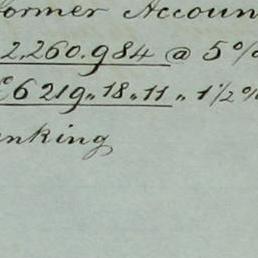 former Accoun
2,260.984 @ 5 %
6219,,18,,11 ,, 1 1/2 %
nking